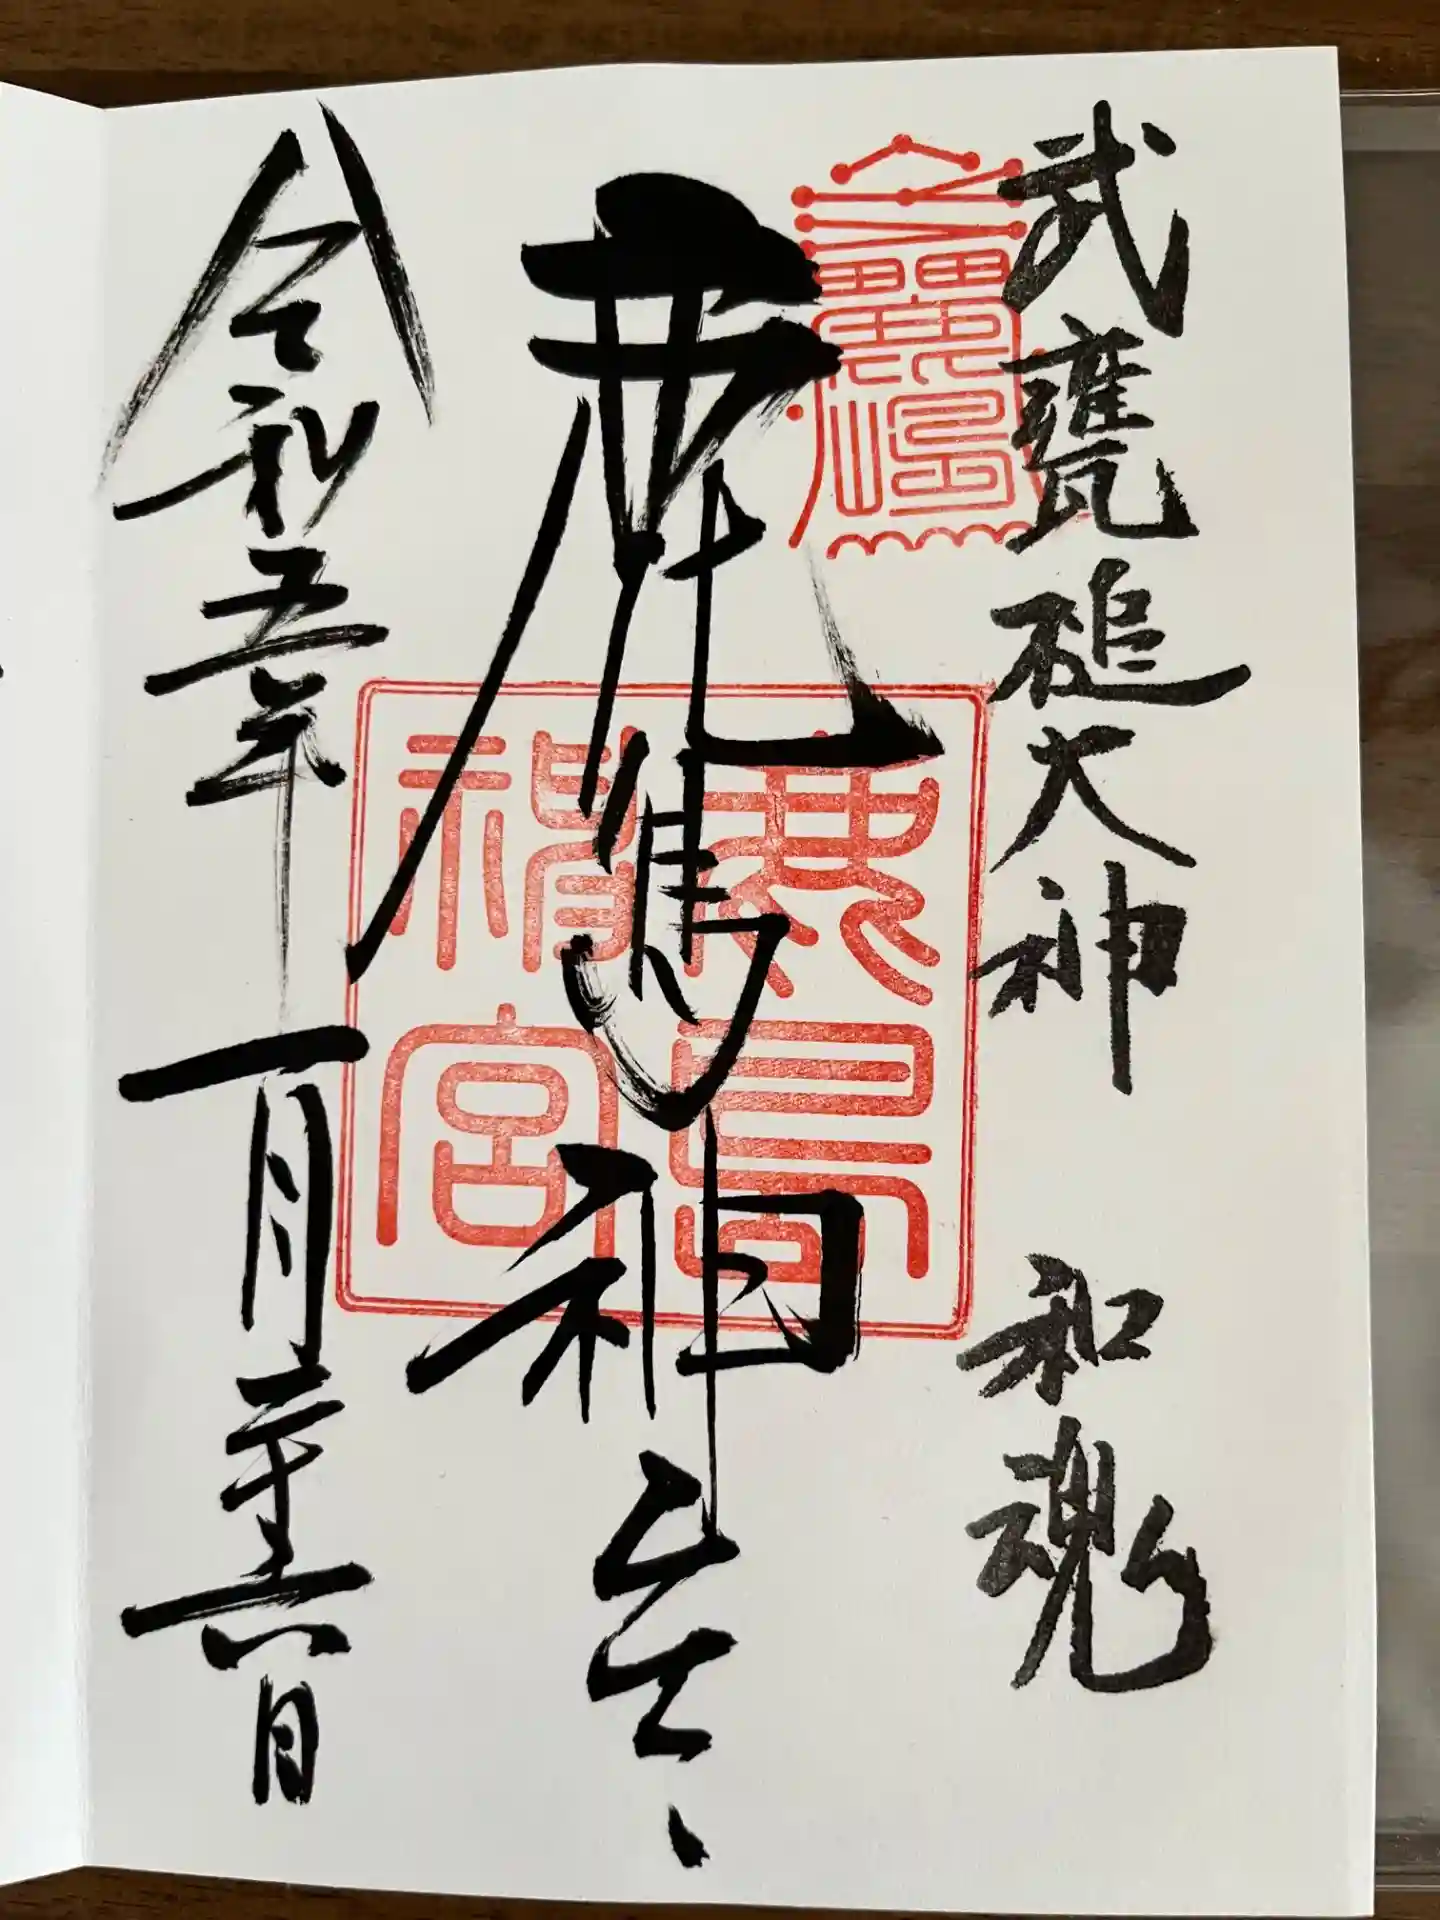 武甕槌大神　和魂
鹿島神宮
令和五年一月二十六日
鹿島
神宮